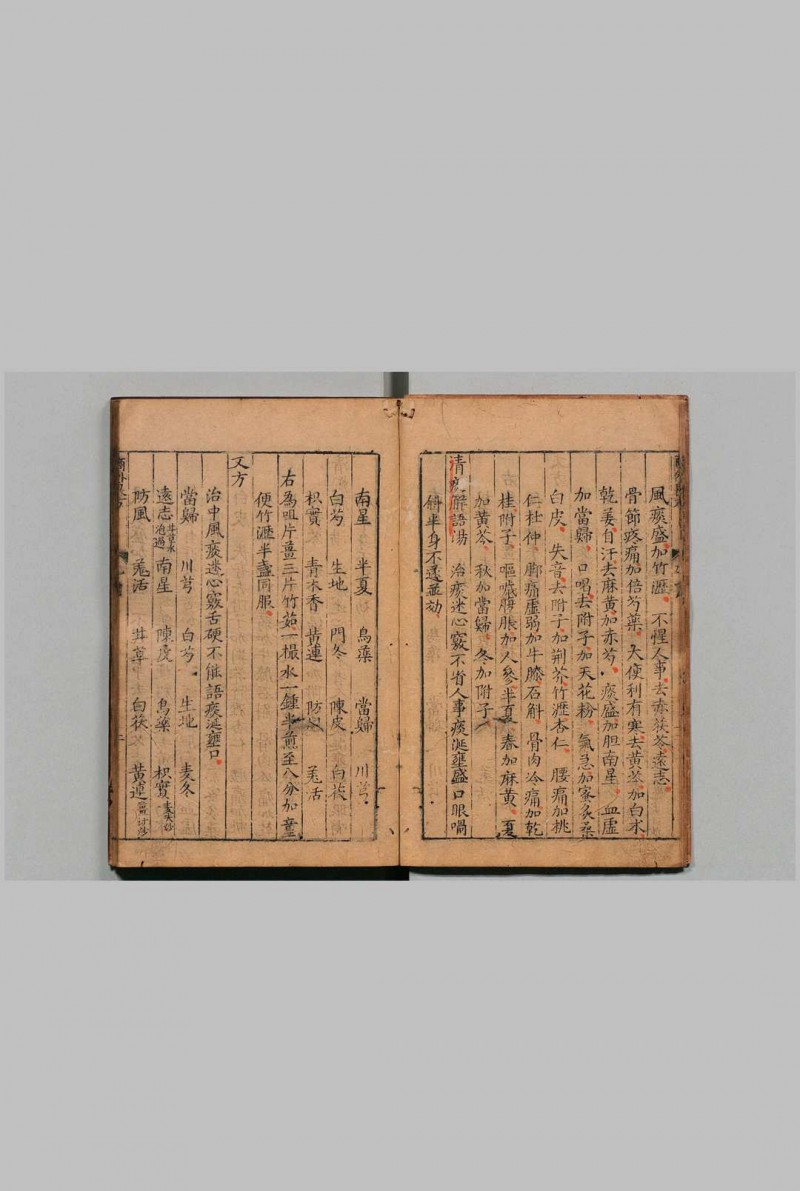 風痰盛加竹瀝 不惺人事去赤茯苓遠志
骨節疼痛加倍芍藥 大便利有寒去黄芩加白术
乾姜自汗去麻黄加赤芍 痰盛加胆南星 血虛
加當歸 口喎去附子加天花粉 氣急加蜜炙桑
白皮 失音去附子加荆芥竹瀝杏仁 腰痛加桃
仁杜仲 脚痛虛弱加牛膝石斛 骨肉冷痛加乾
桂附子 嘔噦腹脹加人參半夏 春加麻黄 夏
加黄芩 秋加當歸 冬加附子
清痰解語湯 治痰迷心竅不省人事痰涎壅盛口眼喎
斜半身不遂並効
南星 半夏 烏藥 當歸 川芎
白芍 生地 門冬 陳皮 白茯
枳實 青木香 黄連 防風 羌活
右為咀片薑三片竹茹一撮水一鍾半煎至八分加童
便竹瀝半盞同服
又方
治中風痰迷心竅舌硬不能語痰涎壅口
當歸 川芎 白芍 生地 麦冬
遠志甘草水泡過 南星 陳皮 烏藥 枳實麦麸炒
防風 羌活 甘草 白茯 黄連